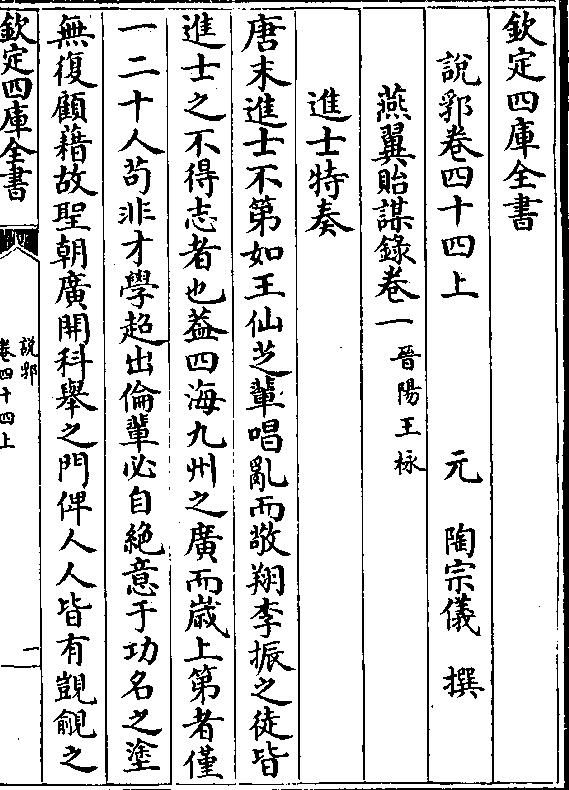 欽定四庫全書
說郛卷四十四上
元　陶宗儀　撰
燕翼貽謀錄卷一　晉陽王栐
進士特奏
唐末進士不第如王仙芝輩唱亂而敬翔李振之徒皆
進士之不得志者也葢四海九州之廣而歲上第者僅
一二十人苟非才學超出倫輩必自絶意于功名之塗
無復顧藉故聖朝廣開科舉之門俾人人皆有覬覦之
欽定四庫全書
說郛
卷四十四上
一